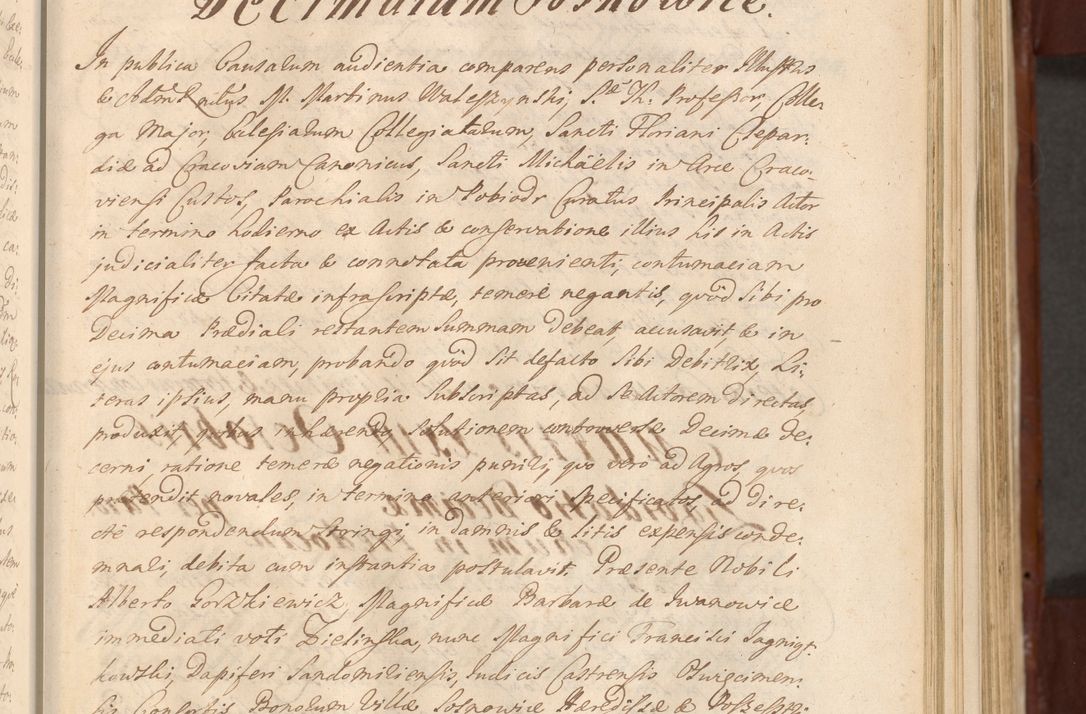 Decimarum Sosnowice.
In publica Causarum audientia comparens personaliter Illustris
& Adm Rndus M. Martinus Waleszynski, S. Th. Professor, Colle-
ga Major, Ecclesiarum Collegiatarum, Sancti Floriani Clepar-
diæ ad Cracoviam Canonicus, Sancti Michaelis in Arce Craco-
viensi Custos, Parochialis in Pobiedr Curatus Principalis Actor
in termino hodierno ex Actis & conservatione illius his in Actis
judicialiter facta & connotata provenienti, contumaciam
Magnificæ Citatæ infrascriptæ, temerè negantis, quòd sibi pro
Decima Prædiali restantem summam debeat, accusavit, & in
ejus contumaciam, probando, quòd sit defacto sibi Debitrix Li-
teras ipsius, manu propria subscriptas, ad Se Actorem directas,
produxit, quibus inhærendo solutionem controversæ Decimæ de-
cerni, ratione temeræ negationis puniri, quo vero ad Agros, quos
prætendit novales, in termino anteriori specificatos, ad dire-
ctè respondendum stringi, in damnis & litis expensis conde-
mnari, debita cum instantia postulavit. Præsente Nobili
Alberto Gorzkiewicz, Magnificæ Barbaræ de Iwanowice
immediati voti Zielinska, nunc Magnifici Francisci Jagnigt-
kowski, Dapiferi Sandomiriensis, Judicis Castrensis Oswiecimen-
sis Consortis, Bonorum Villæ Sosnowice Hæredissæ & Possessri-